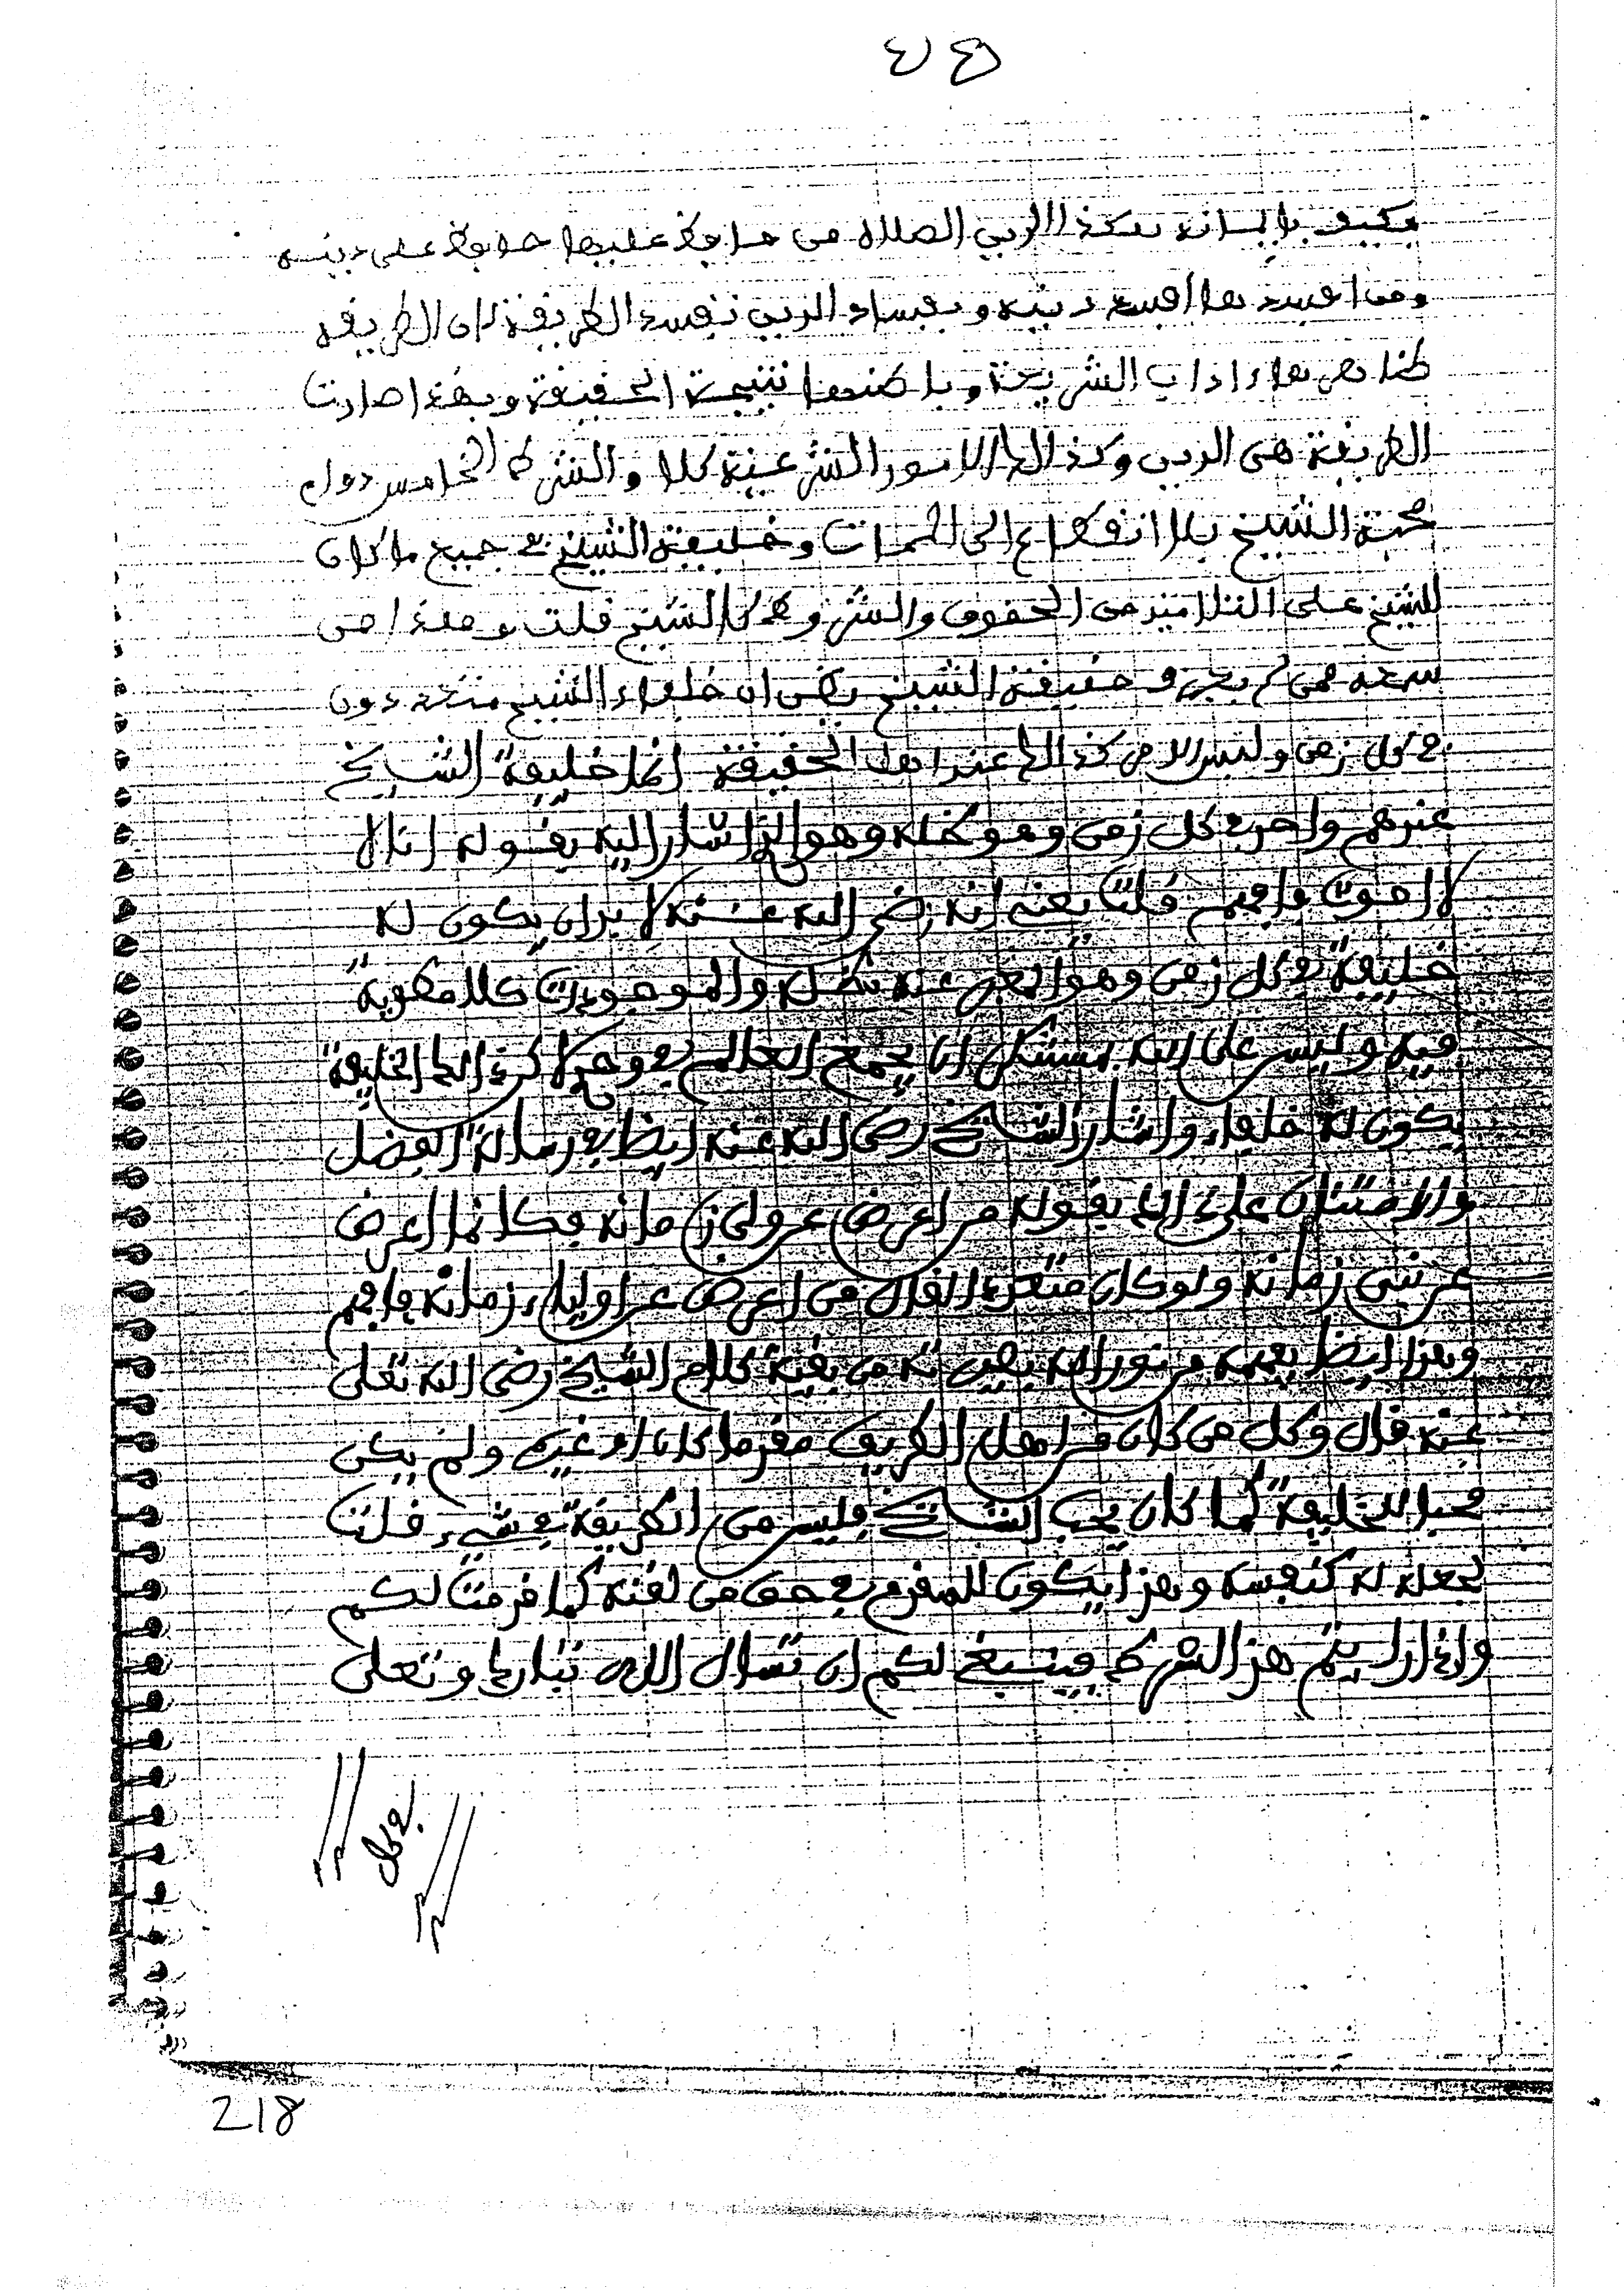 ٤٤
فكيف بإيمانه وكذا الدين الصلاة من حافظ عليها حافظ على دينه
ومن افسدها افسد دينه وبفساد الدين تفسد الطريقة لان الطريقة
ظاهرها ءاداب الشريعة وباطنها نتيجة الحقيقة وبهذا صارت
الطريقة هي الدين وكذالك الامور الشرعية كلا والشرط الخامس دوام
محبة الشيخ بلا انقطاع الى الممات وخليفة الشيخ في جميع ما كان
للشيخ على التلاميذ من الحقوق والشروط كالشيخ قلت وهذا من
فمن لم يعرف خليفة الشيخ يظن ان خلفاء الشيخ متعددون
في كل زمن وليس الامر كذالك عند اهل الحقيقة انما خليفة الشيخ
عندهم واحد في كل زمن وهو كظله وهو الذي اشار اليه بقوله انا لا
لا اموت فافهم قلت يعني انه رضي الله عنه لا بد ان يكون له
خليفة في كل زمن وهو المعبر عنه بظله والموجودات كلا مطوية
فيه وليس على الله بمستنكر ان يجمع العالم في واحد لاكن ذالك الخليفة
يكون له خلفاء واشار الشيخ رضي الله عنه ايضا في رسالة الفضل
والامتنان على الله بقوله من اعرض عن ولي زمانه فكانما اعرض
عن نبي زمانه ولو كان متعددا لقال من اعرض عن اولياء زمانه فافهم
وهذا ايضا يفهمه من نور الله بصيرته من بقية كلام الشيخ رضي الله تعلى
عنه قال وكل من كان من اهل الطريق مقدما كان او غيره ولم يكن
محبا للخليفة كما كان يحب الشيخ فليس من الطريقة في شيء قلت
لجعله له كنفسه وهذا يكون للمقدم في حق من لقنه كما قدمت لكم
واذا رايتم هذا الشرط فينبغي لكم ان تسال الله تبارك وتعلى
في كل
218